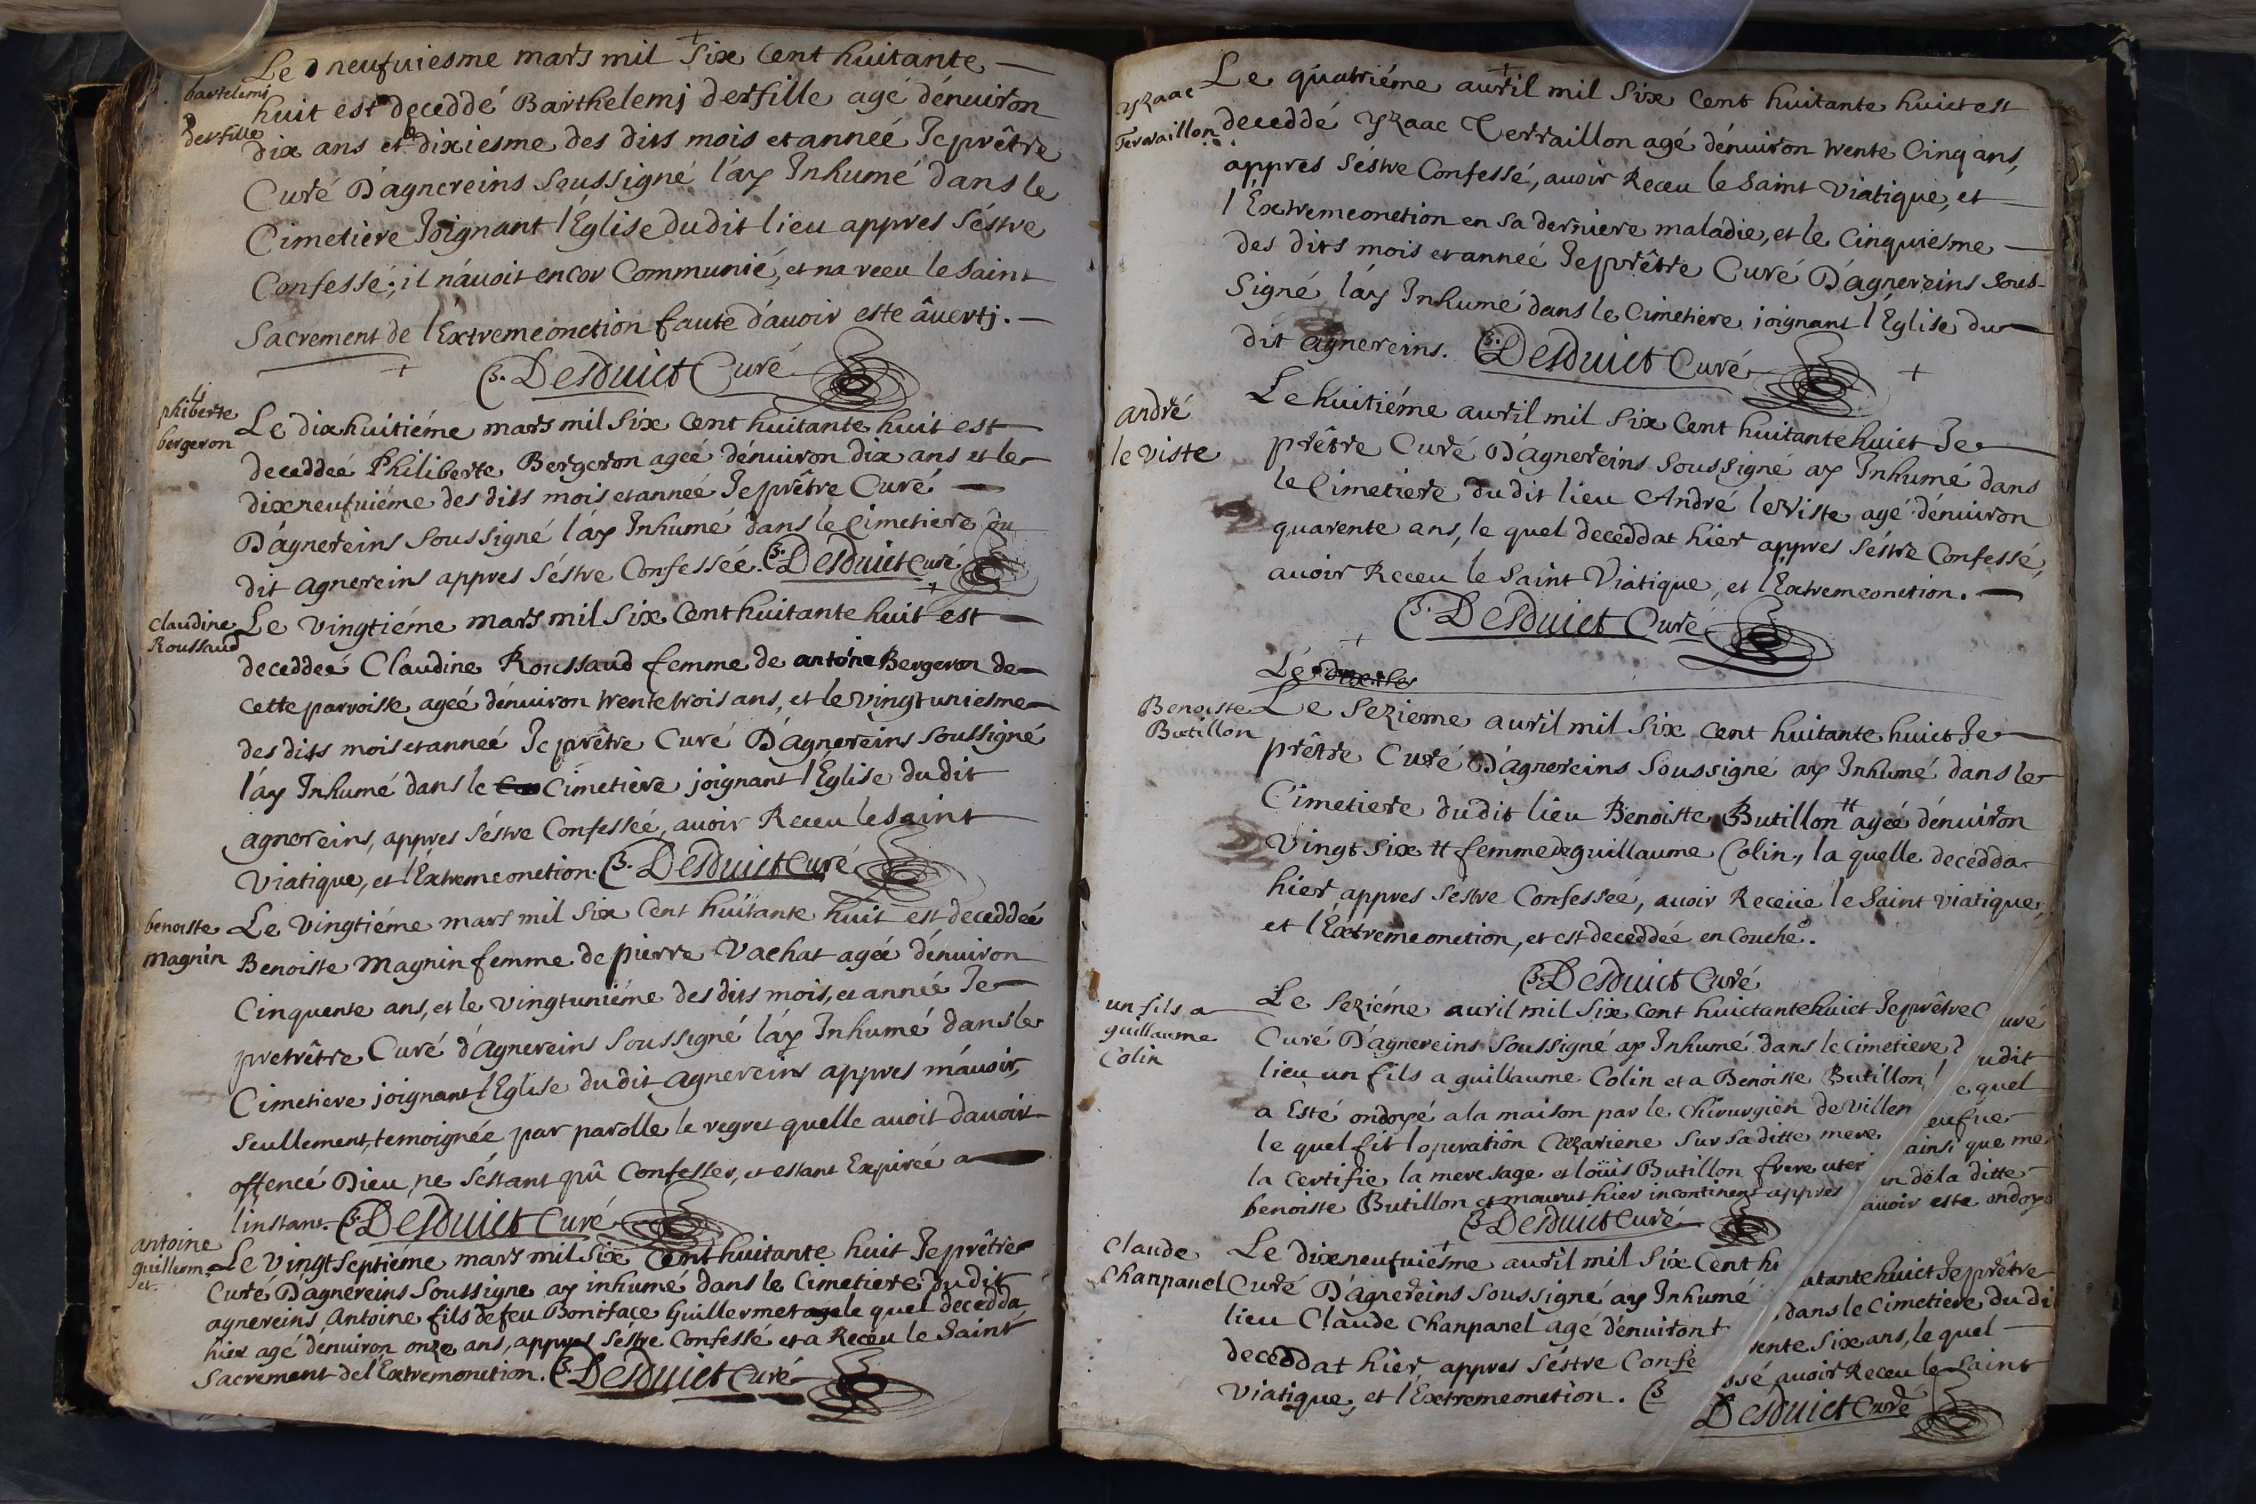 Le neufuiesme mars mil six cent huitante
bartelemi
desfille
huit est deceddé Barthelemj desfille agé dénuiron
dix ans et le dixiesme des dits mois et anneé Je prêtre
Curé D'agnereins soussigné l'áy Inhumé dans le
Cimetiere Joignant l'Église du dit lieu appres séstre
Confessé, il náuoit encor Communié, et na receu le saint
Sacrement de l'Extremeonction faute dáuoir este âuertj.
B. Desduict Curé
philiberte
bergeron
Le dixhuitiéme mars mil six cent huitante huit est
deceddeé Philiberte Bergeron ageé dénuiron dix ans et le
dixneufuiéme des dits mois et anneé Je prêtre Curé
D'ágnereins soussigné l'áy Inhumé dans le Cimetiere du
dit agnereins appres séstre Confesseé. B. Desduict curé
claudine
Roussaud
Le vingtiéme mars mil six cent huitante huit est
deceddeé Claudine Roussaud femme de antoine Bergeron de
cette parroisse ageé dénuiron trente trois ans, et le vingtuniesme
des dits mois et anneé Je prêtre Curé D'Agnereins soussigné
l'áy Inhumé dans le Cimetiére joignant l'Église du dit
agnereins, appres séstre Confesseé, auoir Receu le saint
Viatique, et l'Extremeonction. B. Desduict Curé
benoiste
magnin
Le vingtiéme mars mil six cent huitante huit est deceddeé
Benoiste Magnin femme de pierre Vachat ageé dénuiron
Cinquente ans, et le vingtuniéme des dits mois, et anneé Je
pretrêtre Curé d'Agnereins soussigné láy Inhumé dans le
Cimetiere joignant l'Eglise du dit agnereins appres máuoir,
seullement, temoignée par parolle le regret quelle auoit dauoir
offencé Dieu, ne séstant pû Confesser, et estant Expireé a
linstant. B. Desduict Curé
antoine
guillerm
et.
Le vingt septiéme mars mil six cent huitante huit Je prêtre
Curé D'ágnereins soussigne ay inhumé dans le Cimetiere du dit
agnereins Antoine fils de feu Boniface Guillermet le quel decedda
hier agé dénuiron onze ans, appres séstre Confessé et a Receu le saint
Sacrement de l'Extremonction. B. Desduict Curé
ayzaac
Terraillon
Le quatriéme auril mil six cent huitante huict est
deceddé yzaac Terraillon agé dénuiron trente Cinq ans,
appres séstre Confessé, auoir Receu le saint Viatique, et
l'Éxtremeonction en sa derniere maladie, et le Cinquiesme
des dits mois et anneé Je prêtre Curé D'ágnereins sous-
signé láy Inhumé dans le Cimetiere joignant l'Église du
dit agnereins. B. Desduict Curé
andré
le viste
Le huitiéme auril mil six cent huitante huict Je
prêtre Curé D'ágnereins soussigné ay Inhumé dans
le Cimetiere du dit lieu André leViste agé dénuiron
quarente ans, le quel deceddat hier appres séstre Confessé,
auoir Receu le saint Viatique, et l'Extremeonction.
B. Desduict Curé
Le
Benoiste
Butillon
Le sezieme auril mil six cent huitante huict Je
prêtre Curé D'ágnereins soussigné ay Inhumé dans le
Cimetiere du dit lieu Benoiste Butillon # ageé dénuiron
Vingt six # femme de guillaume Colin, la quelle decedda
hier appres séstre Confesseé, auoir Receüe le saint viatique,
et l'Éxtremeonction, et est deceddeé en Couche.
B. Desduict Curé
un fils a
guillaume
Colin
Le seziéme auril mil six cent huictante huict Je prêtre C uré
Curé D'ágnereins soussigné ay Inhumé dans le Cimetiere d udit
lieu un fils a guillaume Colin et a Benoiste Butillon l equel
a Esté ondoyé a la maison par le chirurgien de villen eufue
le quel fit loperatiôn Cezariene sur sa ditte mere ainsi que me
la certifie la mere sage et loüis Butillon frere uteri n de la ditte
benoiste Butillon et mourut hier incontinent appres auoir este ondoye
B. Desduict Curé
Claude
Chanpanel
Le dixneufuiesme auril mil six Cent hu itante huict Je prêtre
Curé D'ágnereins soussigné ay Inhumé dans le Cimetiere du di
lieu Claude Chanpanel agé dénuiron t rente six ans, le quel
deceddat hier, appres séstre Confe ssé auoir Receu le saint
Viatique, et l'Extremeonction. B Desduict Curé